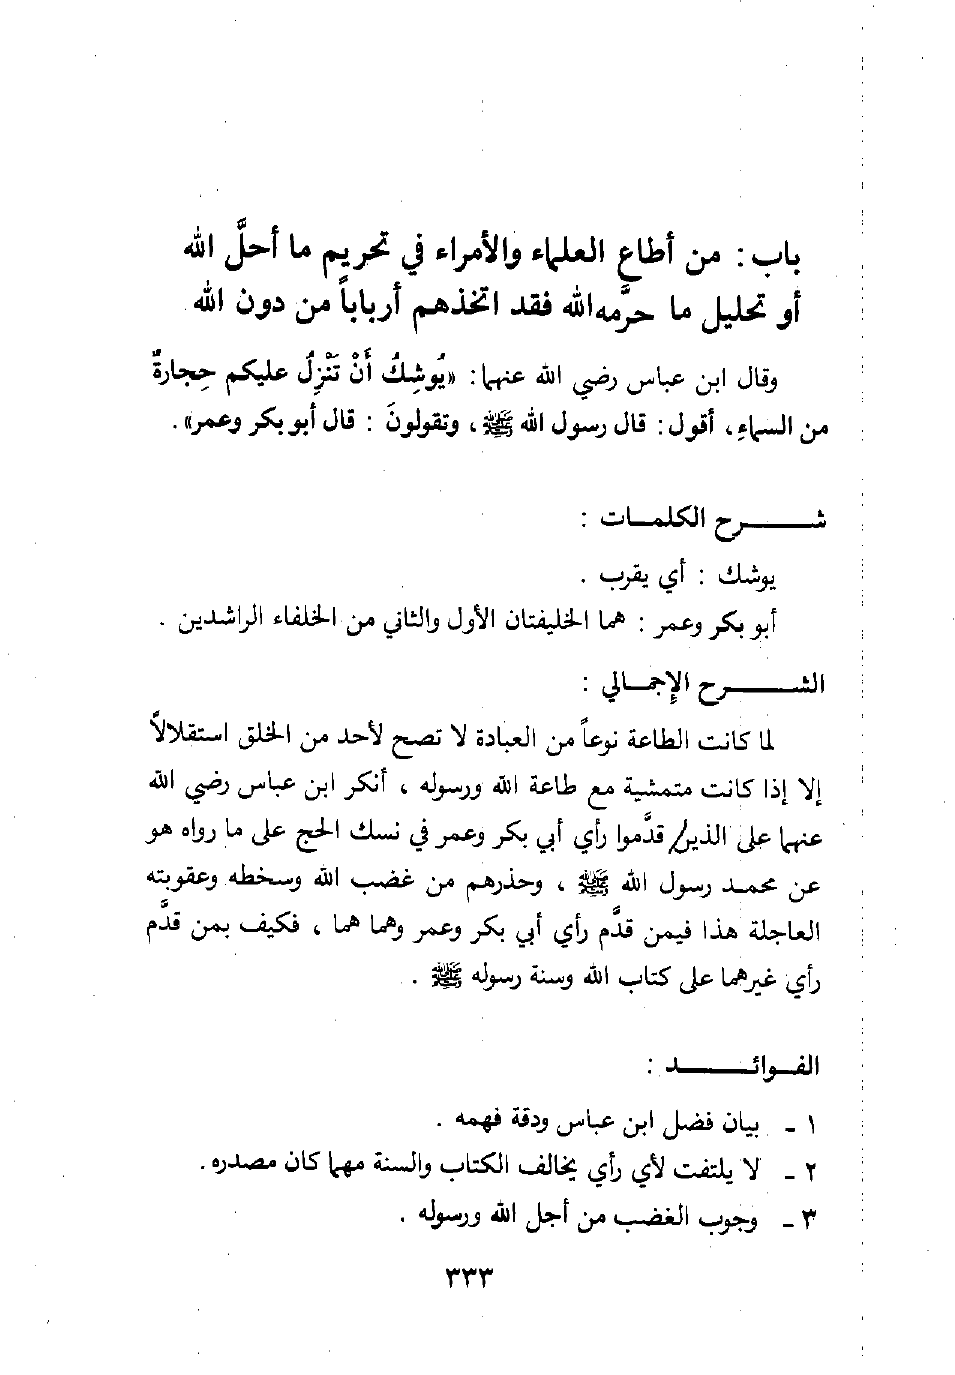 باب : من أطاع العلماء والأمراء في تحريم ما أحلَّ الله
أو تحليل ما حرَّمه الله فقد اتخذهم أرباباً من دون الله
وقال ابن عباس رضي الله عنهما : «يُوشِكُ أَنْ تَنْزِلُ عليكم حِجارةٌ
من السماءِ ، أقول : قال رسول الله ﷺ ، وتقولونَ : قال أبو بكر وعمر» .
شرح الكلمات :
يوشك : أي يقرب .
أبو بكر وعمر : هما الخليفتان الأول والثاني من الخلفاء الراشدين .
الشرح الإجمالي :
لما كانت الطاعة نوعاً من العبادة لا تصح لأحد من الخلق استقلالاً
إلا إذا كانت متمشية مع طاعة الله ورسوله ، أنكر ابن عباس رضي الله
عنهما على الذين قدَّموا رأي أبي بكر وعمر في نسك الحج على ما رواه هو
عن محمد رسول الله ﷺ ، وحذرهم من غضب الله وسخطه وعقوبته
العاجلة هذا فيمن قدَّم رأي أبي بكر وعمر وهما هما ، فكيف بمن قدَّم
رأي غيرهما على كتاب الله وسنة رسوله ﷺ .
الفوائد :
١ - بيان فضل ابن عباس ودقة فهمه .
٢ - لا يلتفت لأي رأي يخالف الكتاب والسنة مهما كان مصدره .
٣ - وجوب الغضب من أجل الله ورسوله .
٣٣٣